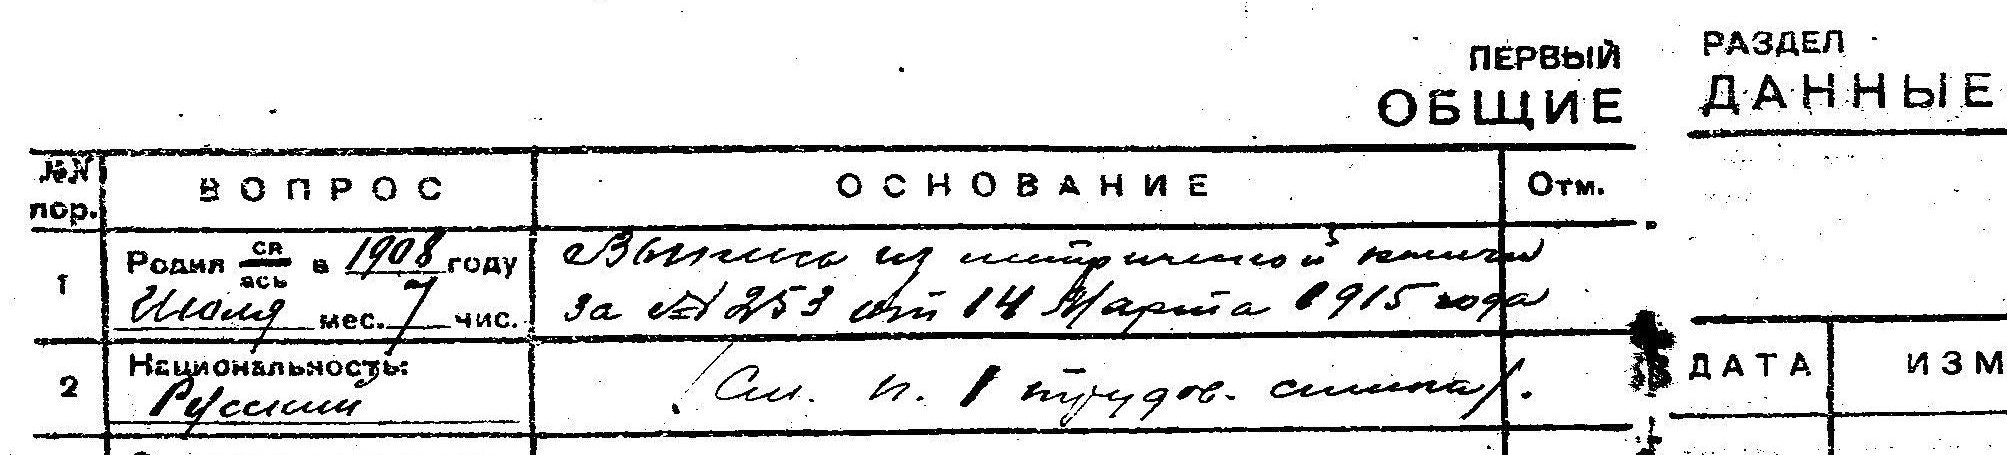 ПЕРВЫЙ РАЗДЕЛ
ОБЩИЕ ДАННЫЕ
№№ пор. ВОПРОС ОСНОВАНИЕ Отм.
1 Родил ся/ась в 1908 году Выпись из метрической книги
Июля мес. 7 чис. за № 253 от 14 Марта 1915 года
2 Национальность: Русский (См. п. 1 трудов. списка).
ДАТА ИЗМ